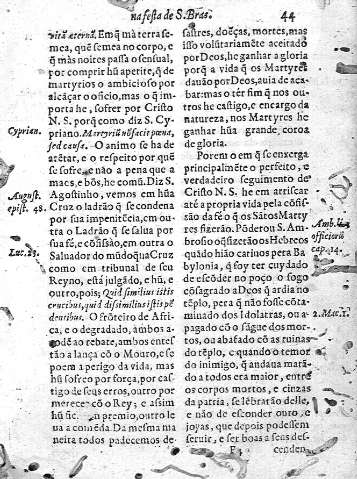 na festa de S. Bras. 44
vitã æternã. Emq̃ mà terra se-
mea, quẽ semea no corpo, e
q̃ màs noites passa o sensual,
por comprir hũ aperite, q̃ de
martyrios o ambicioso por
alcãçar o oficio, mas o q̃ im
porta he, sofrer por Cristo
N. S. porq̃ como diz S. Cy-
priano. Martyriũ nõ facit pœna,
sed causa. O animo se ha de
atẽtar, e o respeito por quẽ
se sofre, e não a pena que a
maos, e bõs, he comũ. Diz S.
Agostinho, vemos em hũa
Cruz o ladrão q̃ se condena
por sua impenitẽcia, em ou-
tra o Ladrão q̃ se salua por
sua fé, e cõfissão, em outra o
Saluador do mũdo, q̃ na Cruz
como em tribunal de seu
Reyno, está julgãdo, e hũ, e
outro, pois; Quid similius istis
crucibus, quid dissimilius istis pẽ
dentibus. O frõteiro de Afri-
ca, e o degradado, ambos a-
codẽ ao rebate, ambos enres-
tão a lança cõ o Mouro, e se
poem a perigo da vida, mas
hũ sofreo por força, por cas-
tigo de seus erros, outro por
merecer cõ o Rey; e assim
hũ fic premio, outro le
ua a comẽda. Da mesma ma
neira todos padecemos de-
Cyprian.
August.
epist. 48.
Luc. 23.
sastres, doẽças, mortes, mas
isso volũtariamẽte aceitado
por Deos, he ganhar a gloria
porq̃ a vida q̃ os Martyres
dauão por Deos, auia de aca-
bar: mas o ter fim q̃ nos ou-
tros he castigo, e encargo da
natureza, nos Martyres he
ganhar hũa grande coroa
de gloria.
Porem o em q̃ se enxerga
principalmẽte o perfeito, e
verdadeiro seguimento de
Cristo N. S. he em arriscar
atè a propria vida pela cõfis-
são da fé o q̃ os Sãtos Marty
res fizerão. Põdera S. Am-
brosio o q̃ fizerão os Hebreos
quãdo hião cariuos pera Ba
bylonia, q̃ foy ter cuydado
de escõder no poço o fogo
cõsagrado a Deos q̃ ardia no
tẽplo, pera q̃ não fosse cõta-
minado dos Idolatras, ou a-
pagado cõ o sãgue dos mor-
tos, ou abafado cõ as ruinas
do tẽplo, e quando o temor
do inimigo, q̃ andaua matã-
do a todos era maior, entre
os corpos mortos, e cinzas
da patria, se lẽbrarão delle,
e não de esconder ouro, e
joyas, que depois podessem
seruir, e ser boas a seus des-
F 3 cenden-
Amb. li.
officiorũ
cap. 14.
2. Mac. 1.